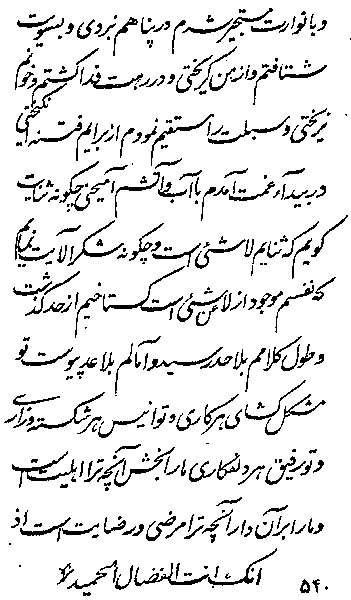 و بانوارت مستجیر شدم در پناهم نبردی و بسویت
شتافتم و از من گریختی و در رهت فدا گشتم و خونم
نریختی و سبیلت را مستقیم نمودم از برایم فتنه انگیختی
در بیداء غمت آمدم با آب و آتشم آمیختی چگونه ثنایت
گویم که ثنایم لاشئ است و چگونه شکر آلایت نمایم
که نفسم موجود از لاعن شئ است گستاخیم از حد گذشت
و طول کلامم بلا حد رسید و آمالم بلا عد پیوست تو
مشکل گشای هر کاری و تو انیس هر شکسته و زاری
و تو رفیق هر دلفکاری ما را بخش آنچه ترا اهلیت است
و ما را بر آن دار آنچه ترا مرضی و رضایت است اذ
انک انت الفضال الحمید
۵۴۰